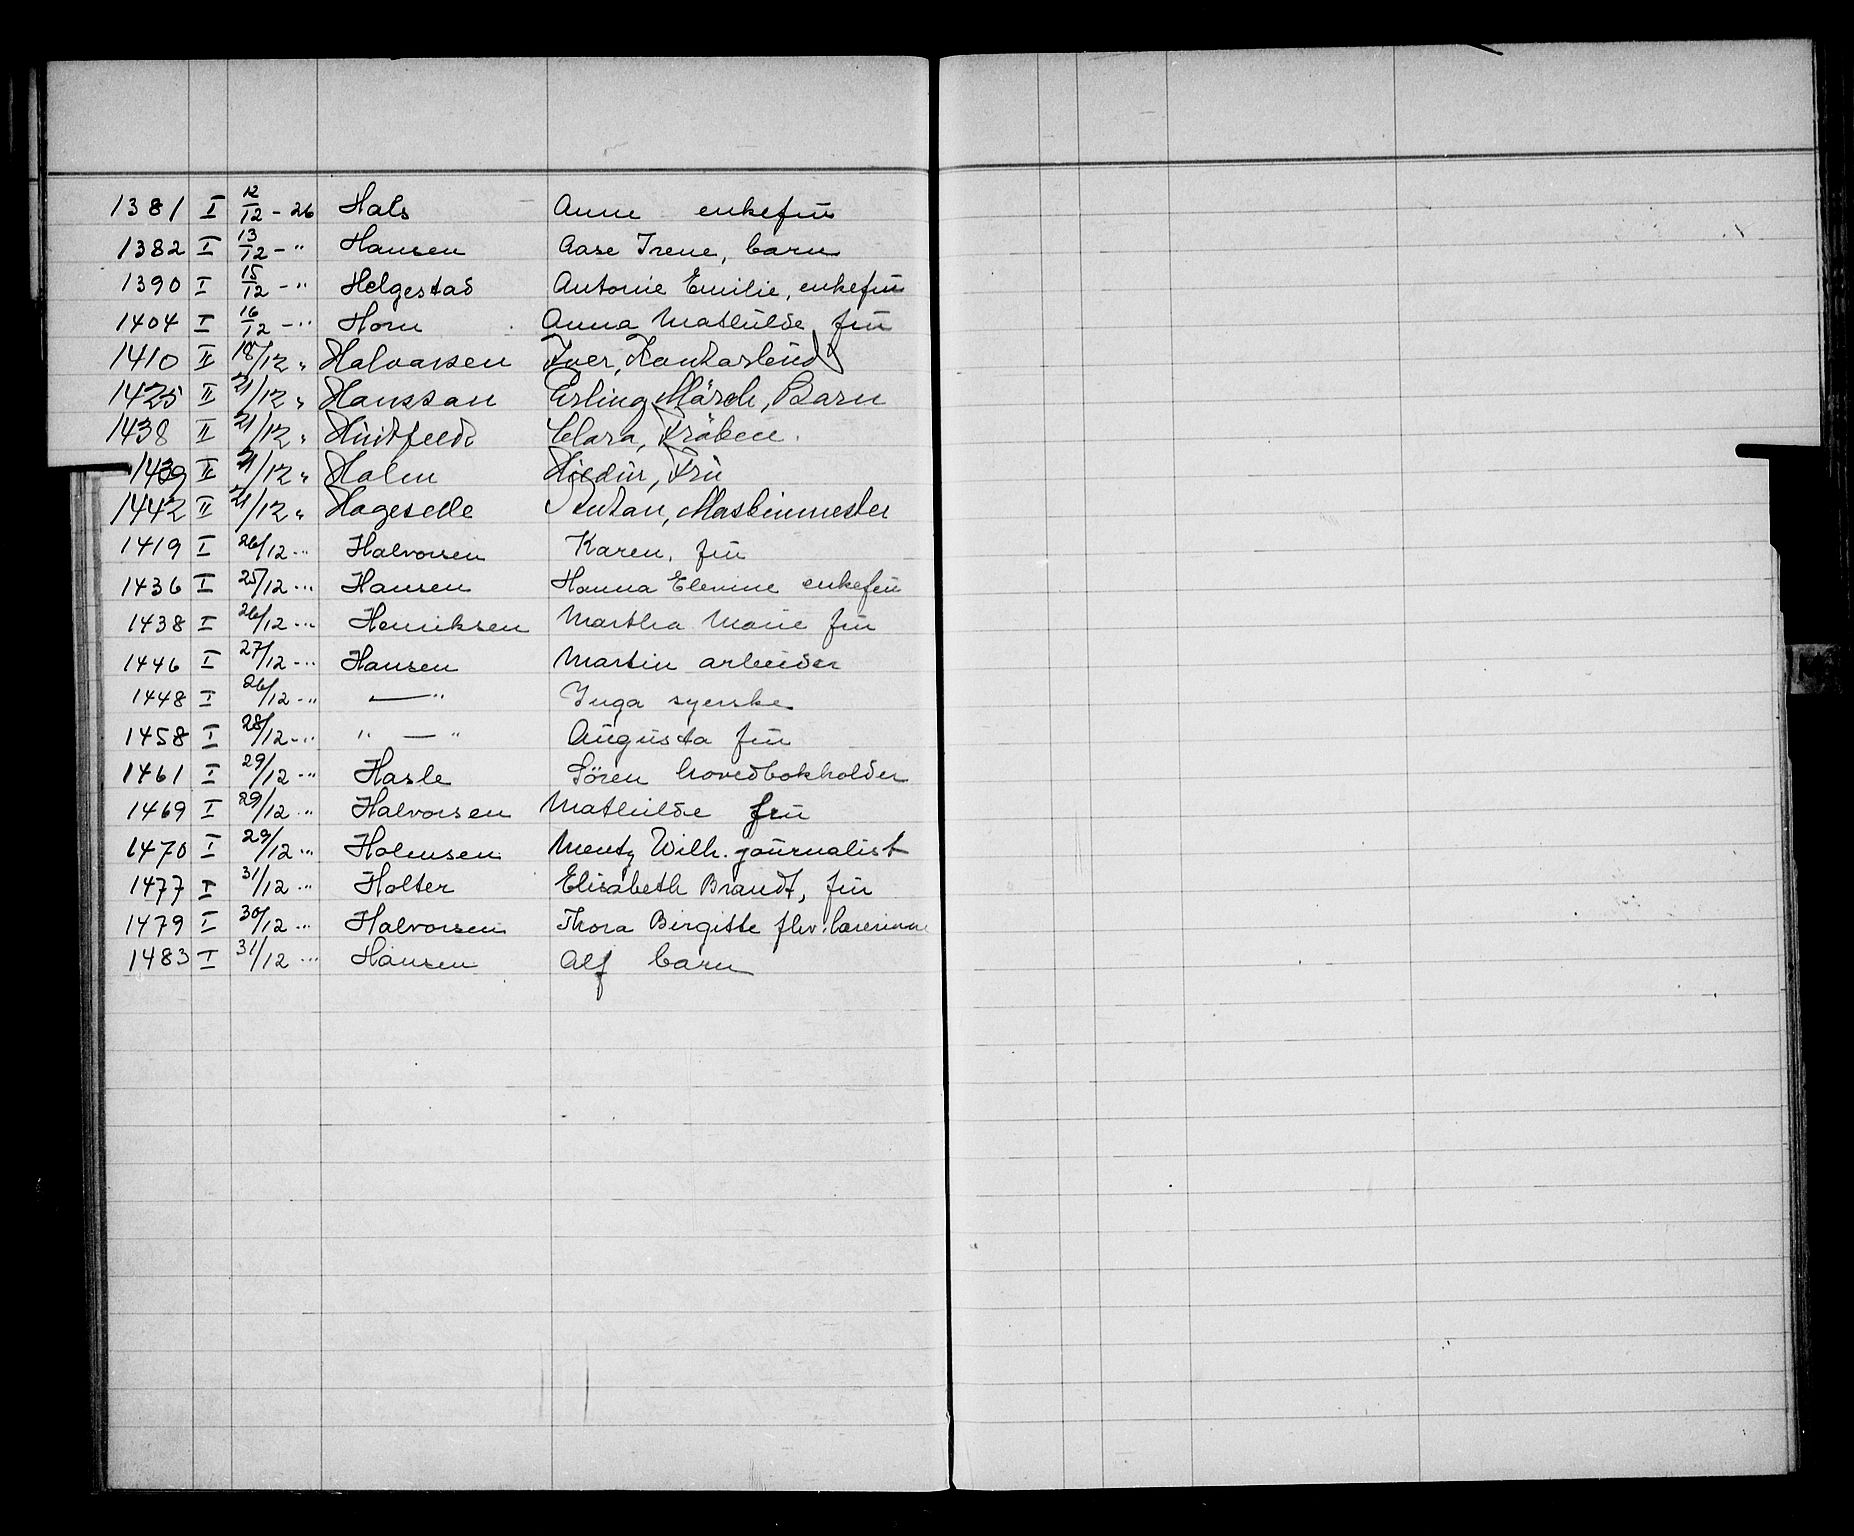 1381 I 12/12 - 26 Hals Anne enkefru
1382 I 13/12 - " Hansen Aase Irene, barn
1390 I 15/12 - " Helgestad Antonie Emilie, enkefru
1404 I 16/12 - " Horn Anna Mathilde fru
1410 II 18/12 " Halvorsen Iver, Kontorbud
1425 II 21/12 " Hansson Erling Märch, Barn
1438 II 21/12 " Huitfeldt Clara, Fröken.
1439 II 21/12 " Holm Hildur, Fru
1442 II 21/12 " Hogeselle Anton, Maskinmester
1419 I 26/12 - " Halvorsen Karen, fru
1436 I 25/12 - " Hansen Hanna Elevine enkefru
1438 I 26/12 - " Henriksen Martha Marie fru
1446 I 27/12 - " Hansen Martin arbeider
1448 I 26/12 - " — " Inga syerske
1458 I 28/12 - " " — " Augusta fru
1461 I 29/12 - " Hasle Sören hovedbokholder
1469 I 29/12 - " Halvorsen Mathilde fru
1470 I 29/12 - " Holmsen Mentz Wilh. journalist
1477 I 31/12 - " Holter Elisabeth Brandt, fru
1479 I 30/12 - " Halvorsen Thora Birgitte fhv. lærerinne
1483 I 31/12 - " Hansen Alf barn